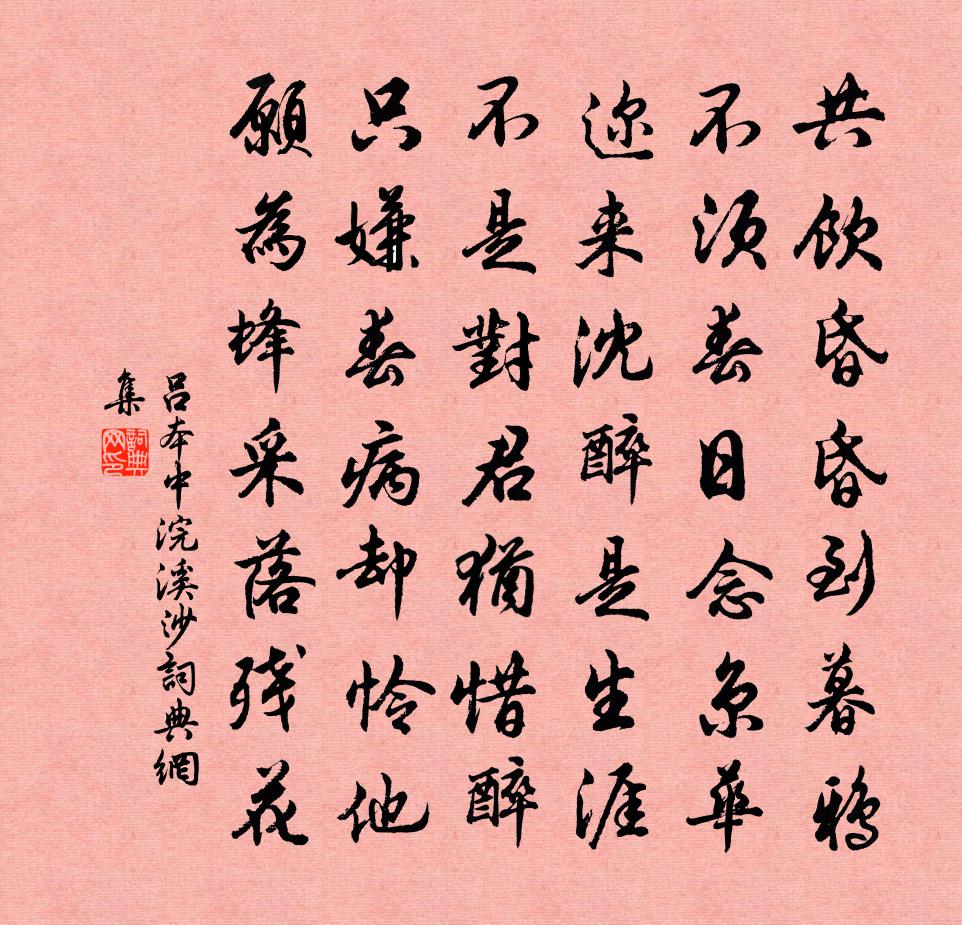 共飲昏昏到暮鴉
不須春日念京華
迩来沈醉是生涯
不是對君猶惜醉
只嫌春病却怜他
願為蜂采落残花
吕本中浣溪沙詞典網
集
詞典网印